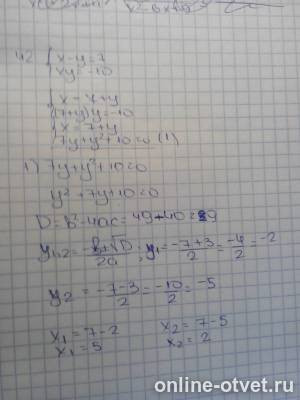 42 { x - y = 7
xy = -10
{ x = 7 + y
(7+y)y = -10
{ x = 7 + y
7y + y² + 10 = 0 (1)
1) 7y + y² + 10 = 0
y² + 7y + 10 = 0
D = b² - 4ac = 49 - 40 = 9
y₁,₂ = (-b ± √D)/2a ; y₁ = (-7+3)/2 = -4/2 = -2
y₂ = (-7-3)/2 = -10/2 = -5
x₁ = 7 - 2 x₂ = 7 - 5
x₁ = 5 x₂ = 2
online-otvet.ru